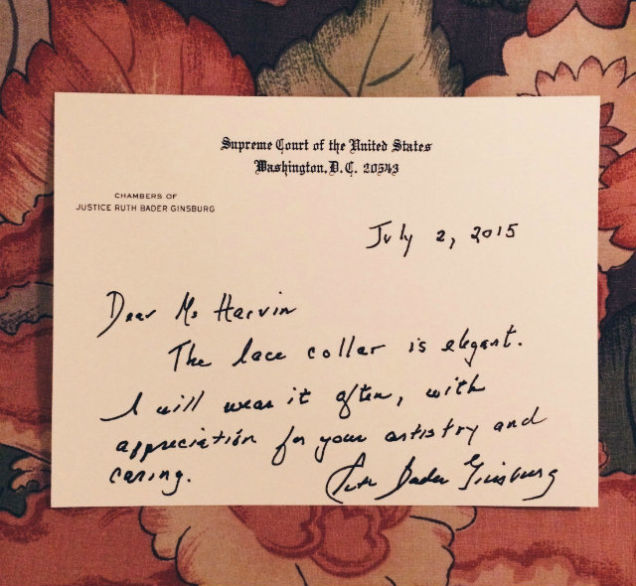 Supreme Court of the United States
Washington, D.C. 20543
CHAMBERS OF
JUSTICE RUTH BADER GINSBURG
July 2, 2015
Dear Ms Harvin
The lace collar is elegant.
I will wear it often, with
appreciation for your artistry and
caring.
Ruth Bader Ginsburg